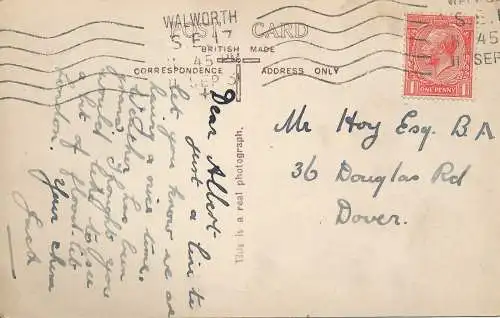 WALWORTH
S.E.17
45 PM
11 SEP
POST CARD
BRITISH MADE
CORRESPONDENCE
ADDRESS ONLY
S.E.
45
11 SEP
ONE PENNY
This is a real photograph.
Dear Albert
just a line to
let you know we are
having a nice time.
Weather has been
grand I thought you
would like to see
a bit of
London. Your chum
Jack
Mr Hoy Esq. B A
36 Douglas Rd
Dover.